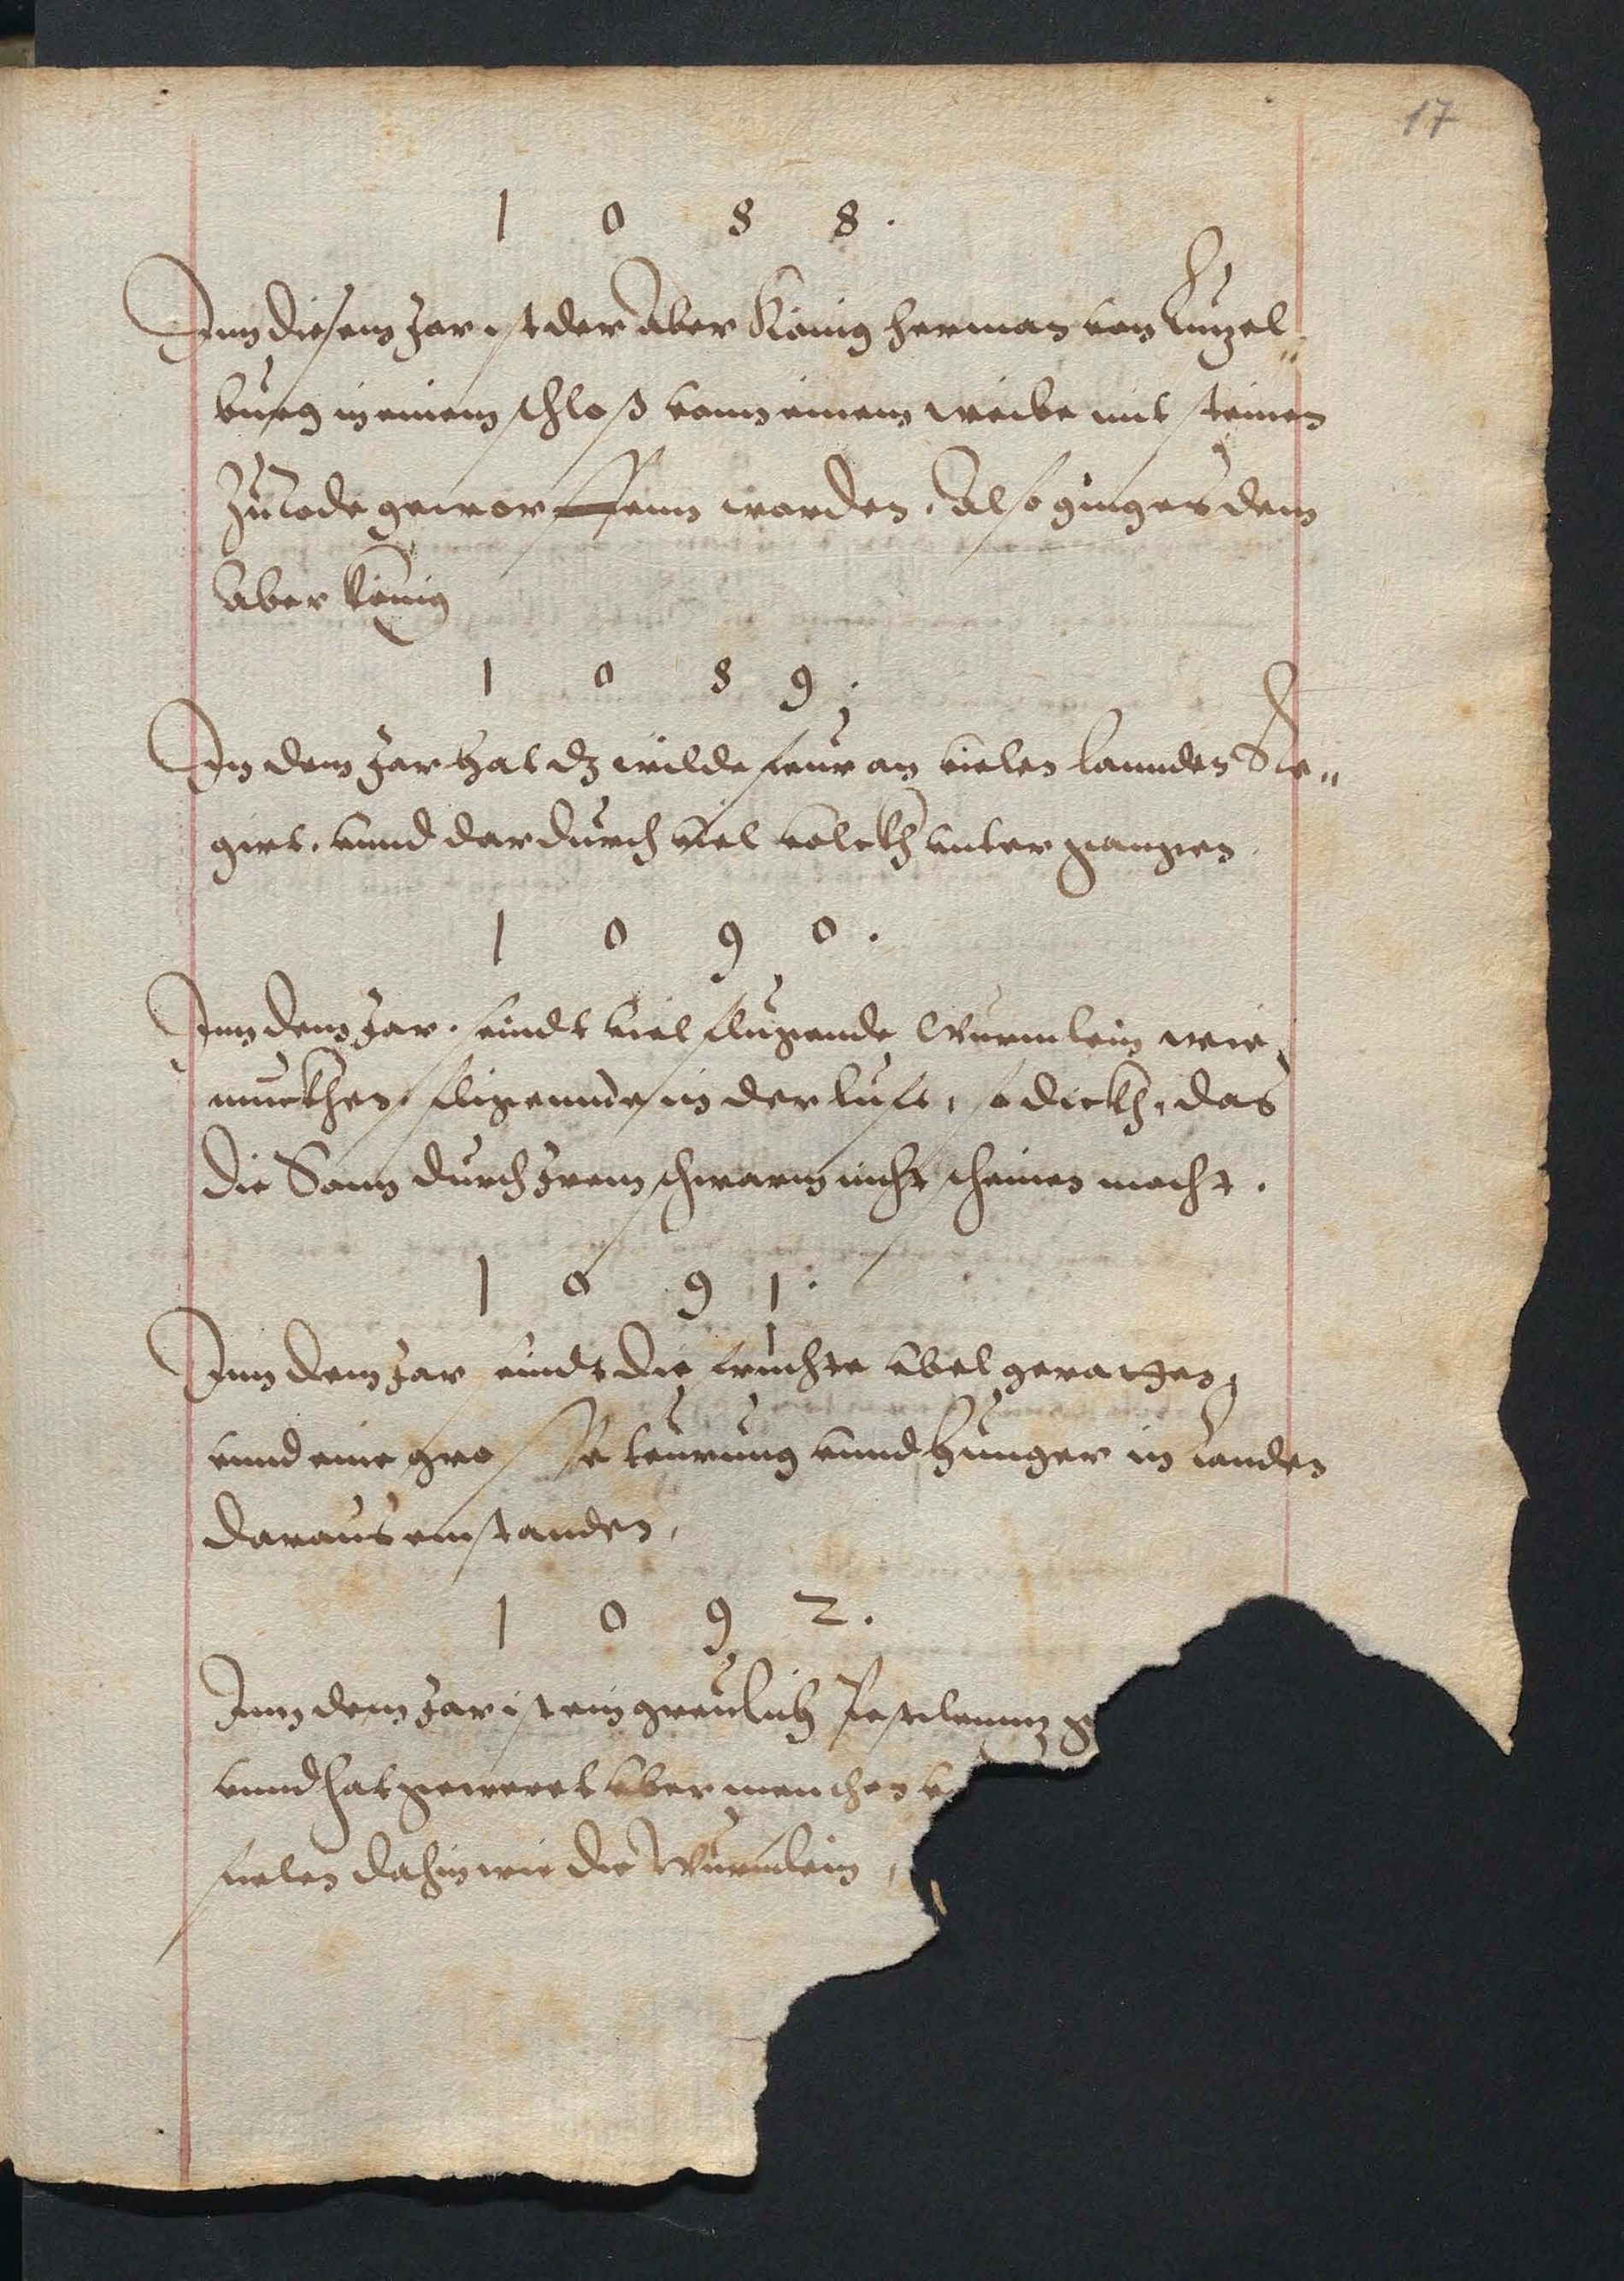 17
1 0 8 8.
Inn diesem Jar ist der Aber König Herman von Lützel„
burg in einem schloß vonn einem weibe mit steinen
zu tode geworffenn worden. Also ging es dem
Aber König
1 0 8 9.
In dem Jar hat dz wilde feur an vielen lannden Re„
girt. vnnd dardurch viel volckh vntergangen.
1 0 9 0.
Inn dem Jar. seindt viel flugende Würmlein wie
muckhen, fligennde in der luft, so dickh, das
die Sonn durch Jrem schwarm nicht scheinen mocht.
1 0 9 1.
Inn dem Jar seindt die fruchte vbel gerathen,
vnnd eine grosse teurung vnnd hunger in landen
daraus enstanden,
1 0 9 2.
Inn dem Jar ist ein greulich Pestilenntz
vnnd hat geweret vber menchen
fielen dahin wie die Würmlein,